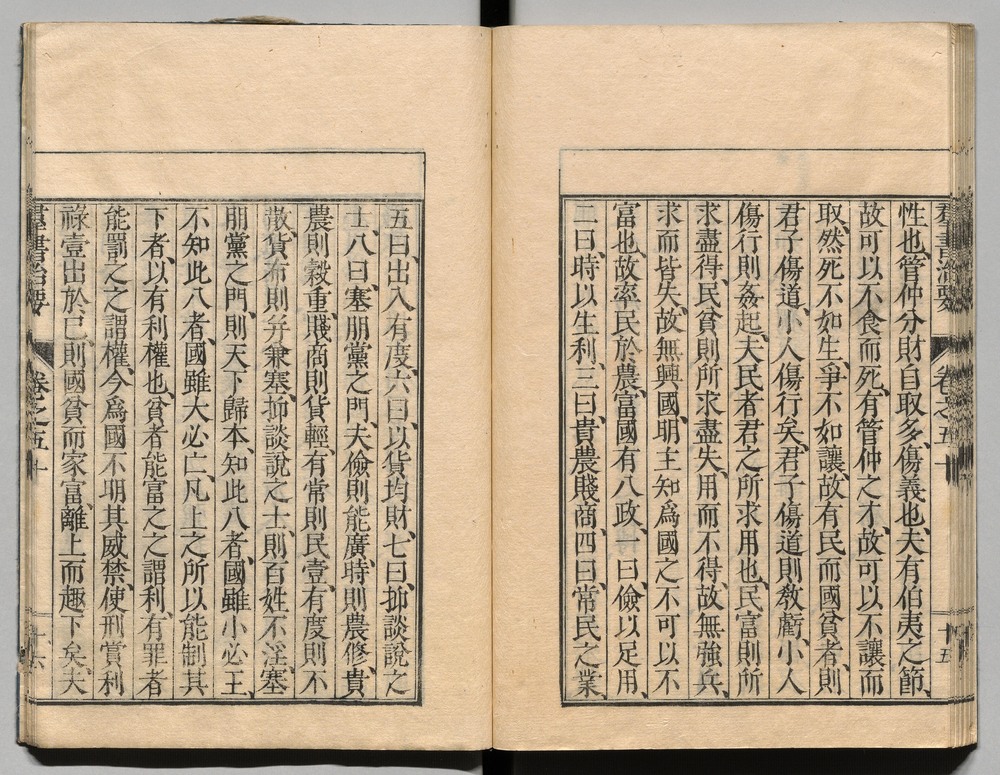 羣書治要　卷之五十　十五
性也、管仲分財自取多、傷義也、夫有伯夷之節、
故可以不食而死、有管仲之才、故可以不讓而
取、然死不如生、爭不如讓、故有民而國貧者、則
君子傷道、小人傷行矣、君子傷道則教虧、小人
傷行則姦起、夫民者君之所求用也、民富則所
求盡得、民貧則所求盡失、用而不得、故無強兵、
求而皆失、故無興國、明主知爲國之不可以不
富也、故率民於農、富國有八政、一曰、儉以足用、
二曰、時以生利、三曰、貴農賤商、四曰、常民之業、
五曰、出入有度、六曰、以貨均財、七曰、抑談說之
士、八曰、塞朋黨之門、夫儉則能廣、時則農修、貴
農則穀重、賤商則貨輕、有常則民壹、有度則不
散、貨布則幷兼塞、抑談說之士、則百姓不淫、塞
朋黨之門、則天下歸本、知此八者、國雖小必王、
不知此八者、國雖大必亡、凡上之所以能制其
下者、以有利權也、貧者能富之之謂利、有罪者
能罰之之謂權、今爲國不明其威禁、使刑賞利
祿壹出於己、則國貧而家富、離上而趣下矣、夫
羣書治要　卷之五十　十六